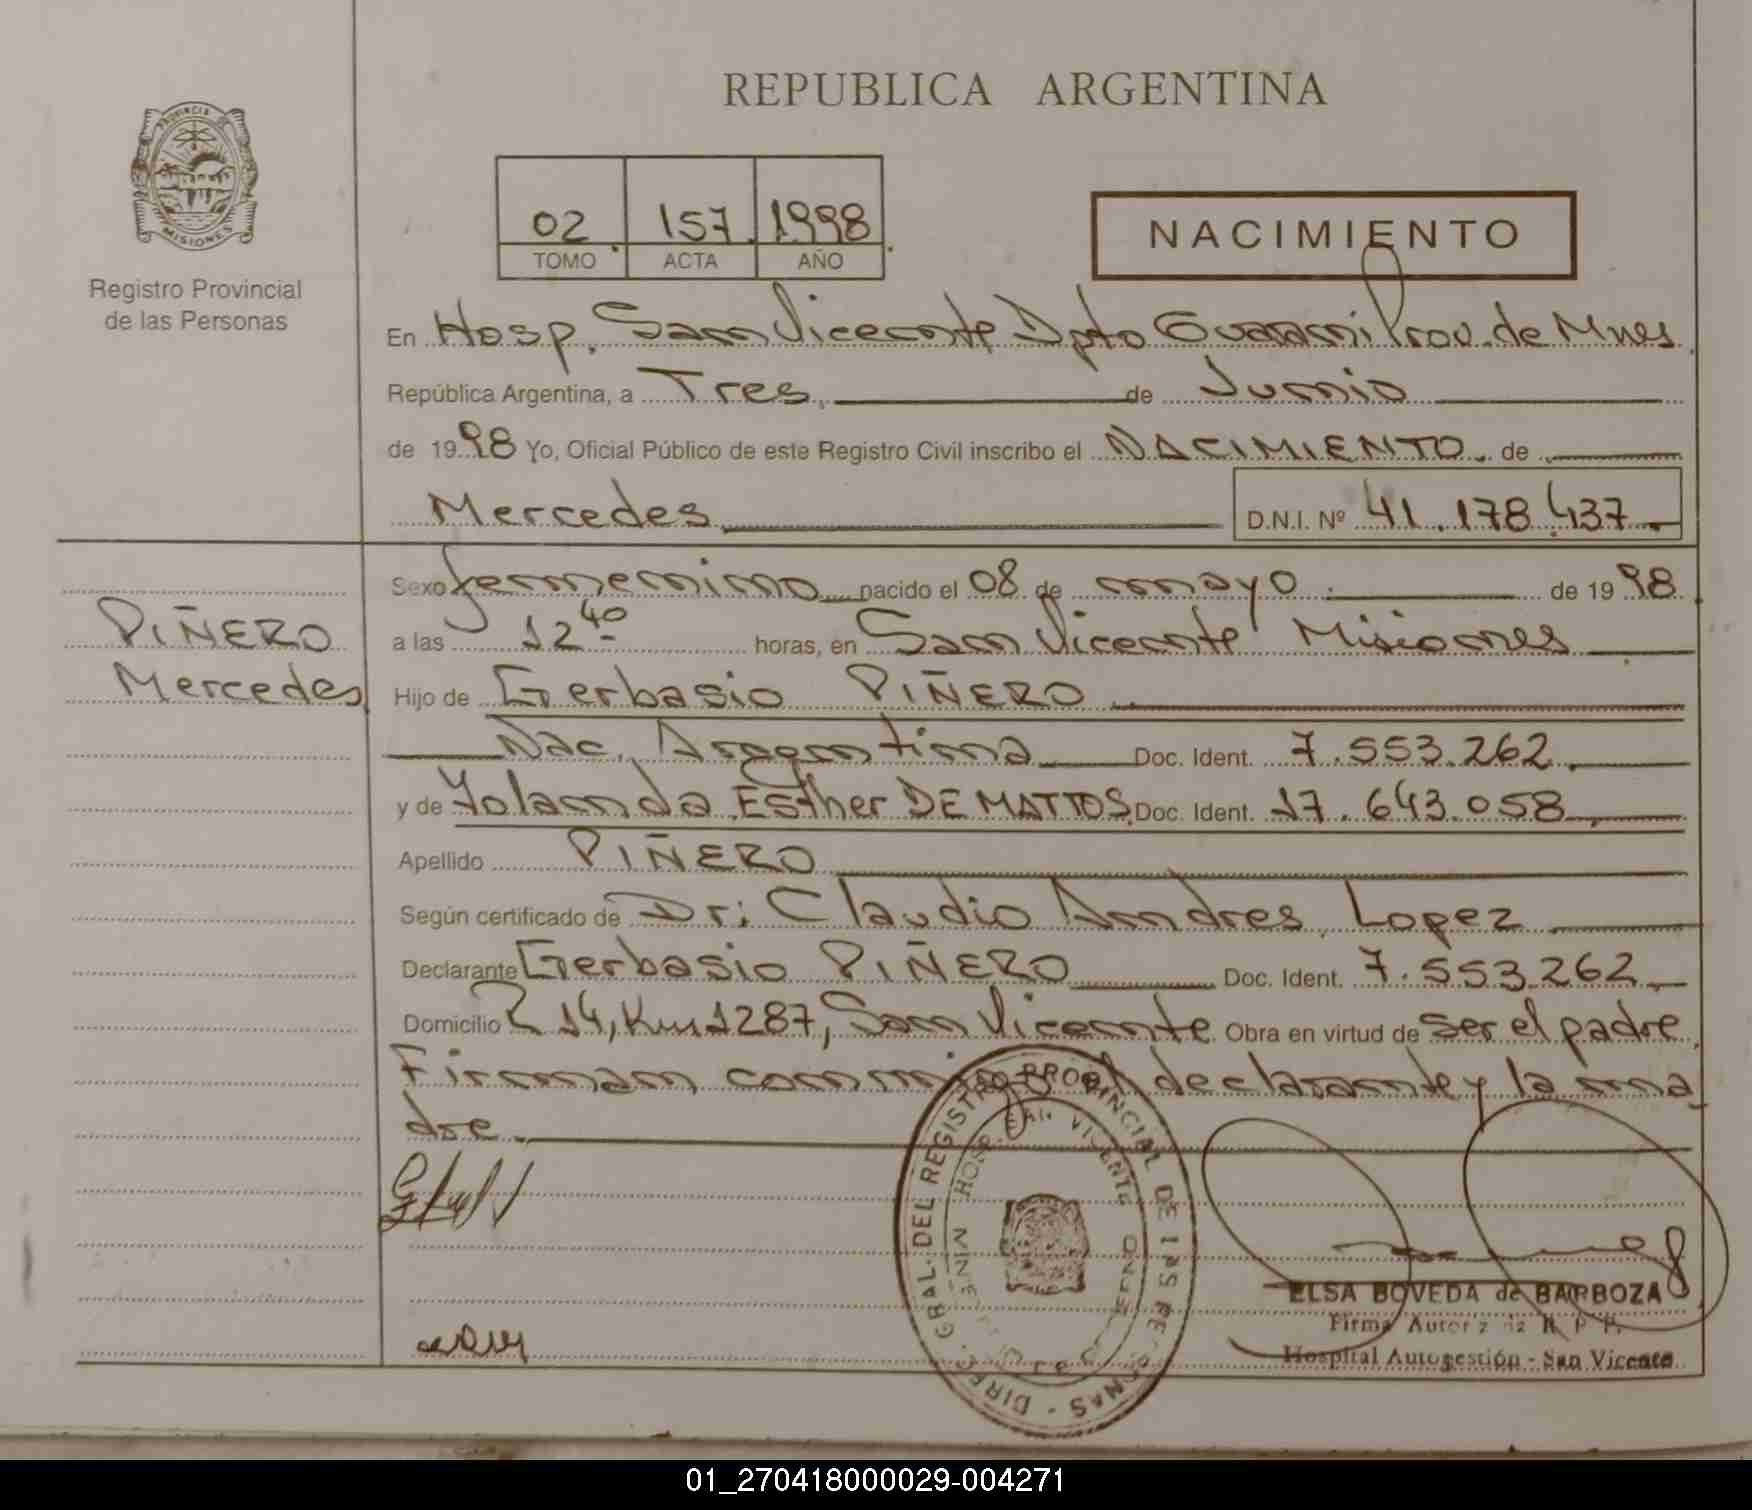 REPUBLICA ARGENTINA
PROVINCIA DE
MISIONES
Registro Provincial
de las Personas
02 157 1998
TOMO ACTA AÑO
NACIMIENTO
En Hosp. San Vicente Dpto Guarani Prov. de Mnes
República Argentina, a Tres de Junio
de 1998 Yo, Oficial Público de este Registro Civil inscribo el NACIMIENTO de
Mercedes D.N.I. Nº 41.178.437
Sexo femenino nacido el 08 de mayo de 1998
PIÑERO
a las 12 40 horas, en San Vicente Misiones
Mercedes
Hijo de Gerbasio PIÑERO
Nac. Argentina Doc. Ident. 7.553.262
y de Yolanda Esther DE MATTOS Doc. Ident. 17.643.058
Apellido PIÑERO
Según certificado de Dr: Claudio Andres Lopez
Declarante Gerbasio PIÑERO Doc. Ident. 7.553.262
Domicilio R 14, Km 1287, San Vicente Obra en virtud de ser el padre
Firman conmigo el declarante y la ma
dre.
DIREC. GRAL. DEL REGISTRO PROVINCIAL DE LAS PERSONAS
HOSP. SAN VICENTE
ELSA BOVEDA de BARBOZA
Firma R. P. P.
Hospital Autogestión - San Vicente
01_270418000029-004271